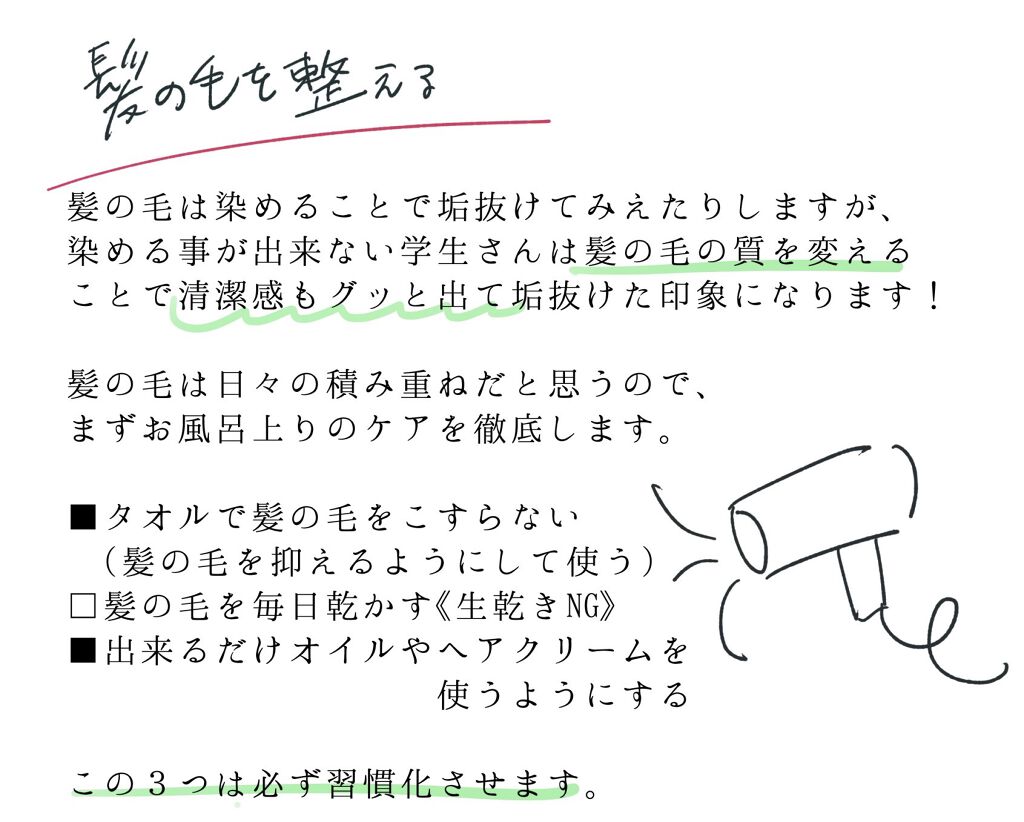 髪の毛を整える
髪の毛は染めることで垢抜けてみえたりしますが、
染める事が出来ない学生さんは髪の毛の質を変える
ことで清潔感もグッと出て垢抜けた印象になります！
髪の毛は日々の積み重ねだと思うので、
まずお風呂上りのケアを徹底します。
■タオルで髪の毛をこすらない
（髪の毛を抑えるようにして使う）
□髪の毛を毎日乾かす《生乾きNG》
■出来るだけオイルやヘアクリームを
使うようにする
この３つは必ず習慣化させます。